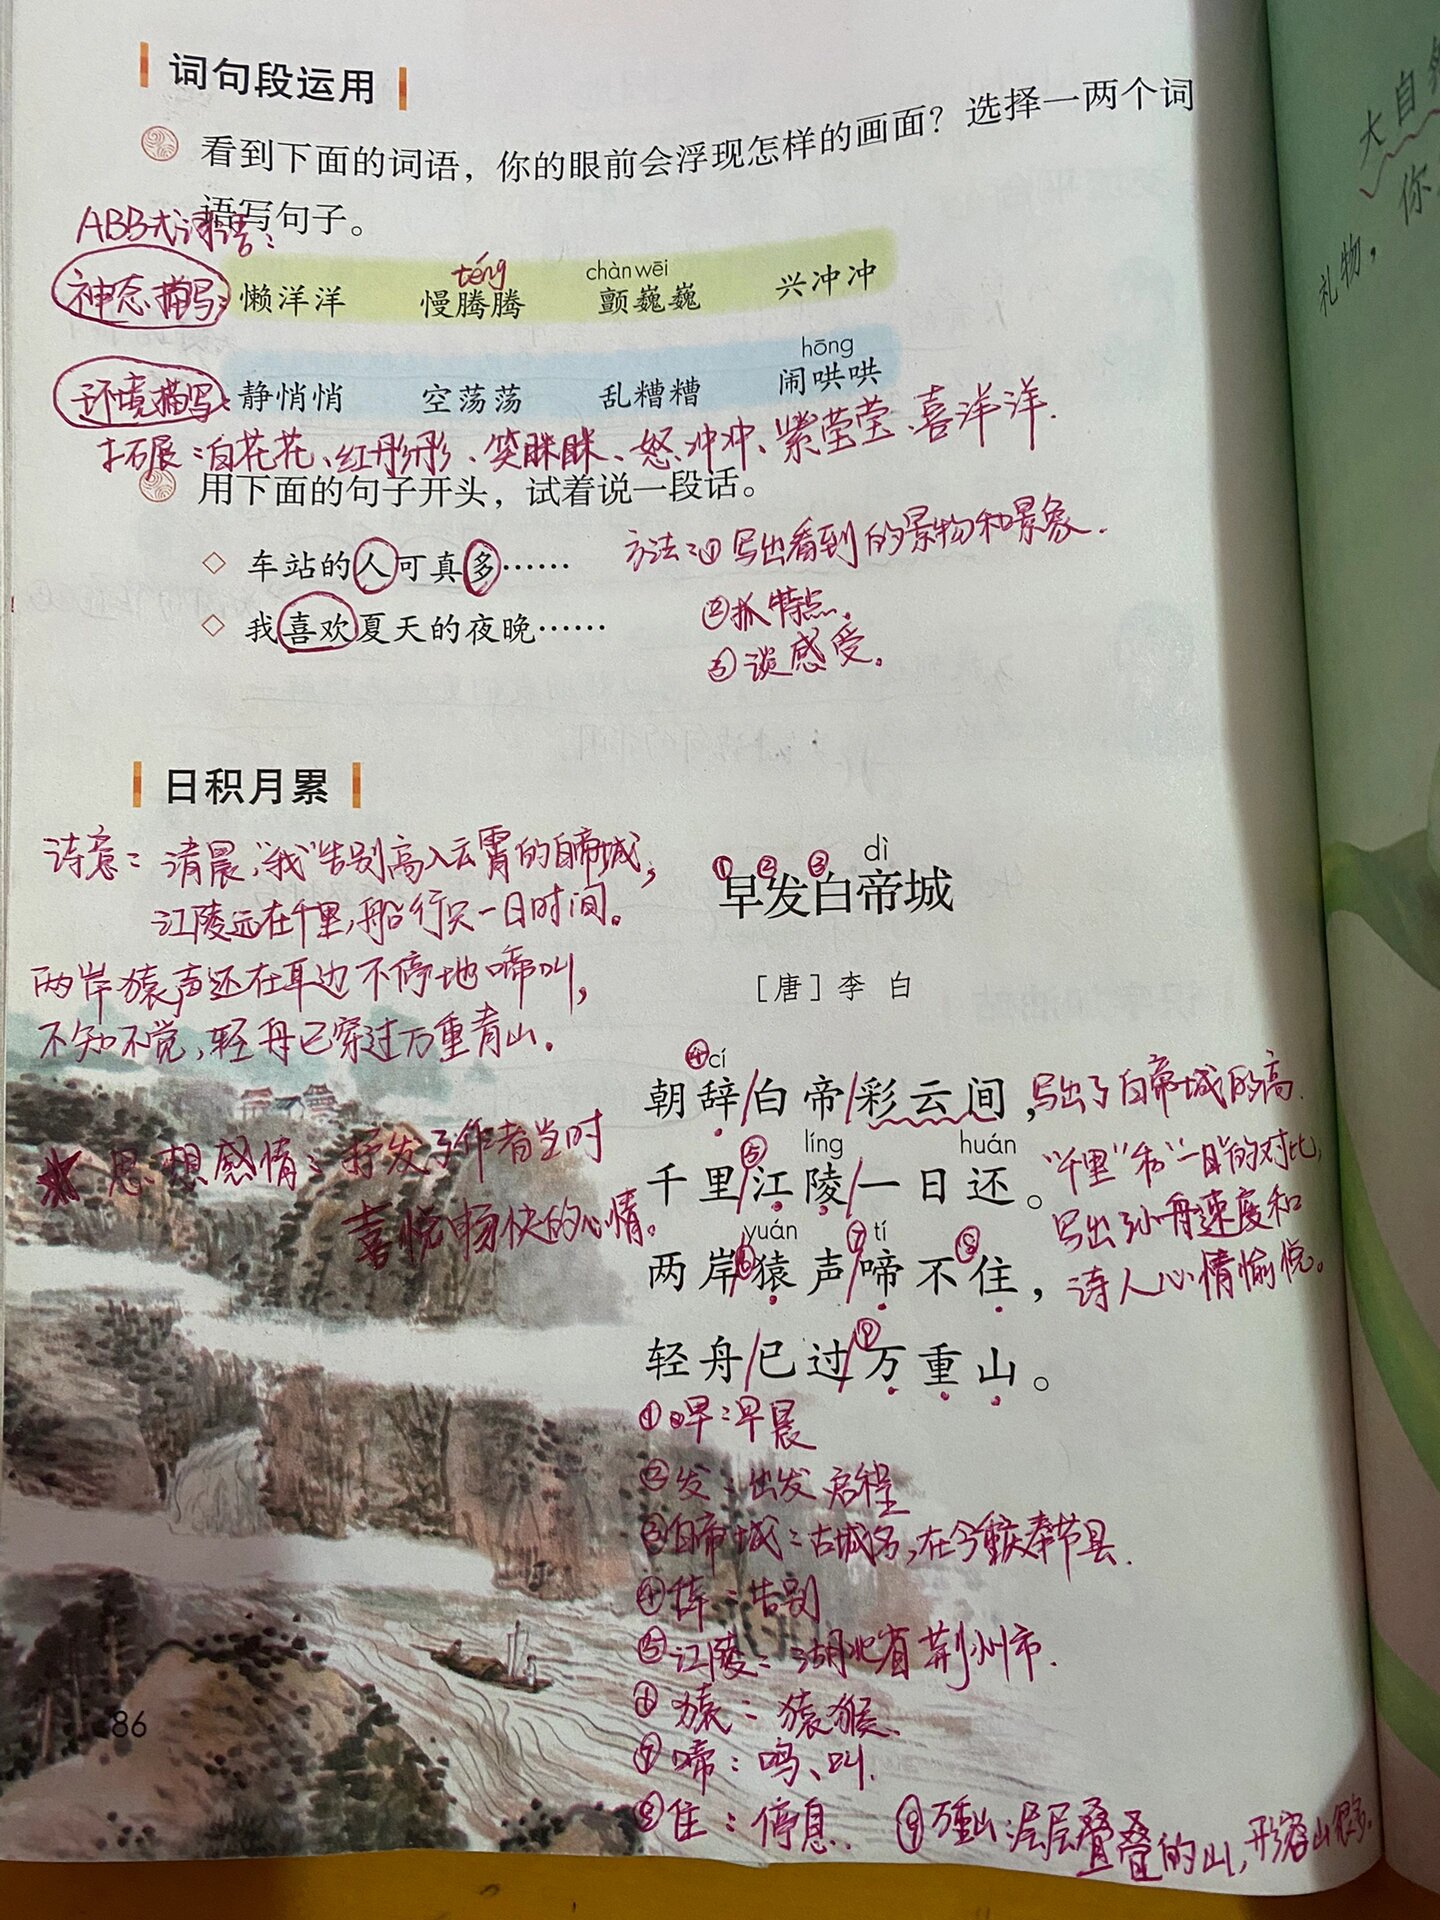 词句段运用
看到下面的词语，你的眼前会浮现怎样的画面？选择一两个词
语写句子。
ABB式词语：
téng chàn wēi
神态描写：懒洋洋 慢腾腾 颤巍巍 兴冲冲
hōng
环境描写：静悄悄 空荡荡 乱糟糟 闹哄哄
拓展：白花花、红彤彤、笑眯眯、怒冲冲、紫莹莹、喜洋洋.
用下面的句子开头，试着说一段话。
◇ 车站的人可真多……
◇ 我喜欢夏天的夜晚……
方法：①写出看到的景物和景象.
②抓特点.
③谈感受.
日积月累
诗意：清晨，“我”告别高入云霄的白帝城，
江陵远在千里，船行只一日时间。
两岸猿声还在耳边不停地啼叫，
不知不觉，轻舟已穿过万重青山.
思想感情：抒发了作者当时
喜悦畅快的心情。
① ② ③ dì
早发白帝城
［唐］李 白
④ cí
朝辞/白帝/彩云间，写出了白帝城的高.
⑤ líng huán
千里/江陵/一日还。“千里”和“一日”的对比，
写出了小舟速度和
诗人心情愉悦。
⑥ yuán ⑦ tí ⑧
两岸/猿声/啼不住，
⑨
轻舟/已过/万重山。
①早：早晨
②发：出发 启程
③白帝城：古城名，在今重庆奉节县.
④辞：告别
⑤江陵：湖北省荆州市.
⑥猿：猿猴.
⑦啼：鸣、叫.
⑧住：停息. ⑨万重山：层层叠叠的山，形容山很多.
86
大自
你
礼物，